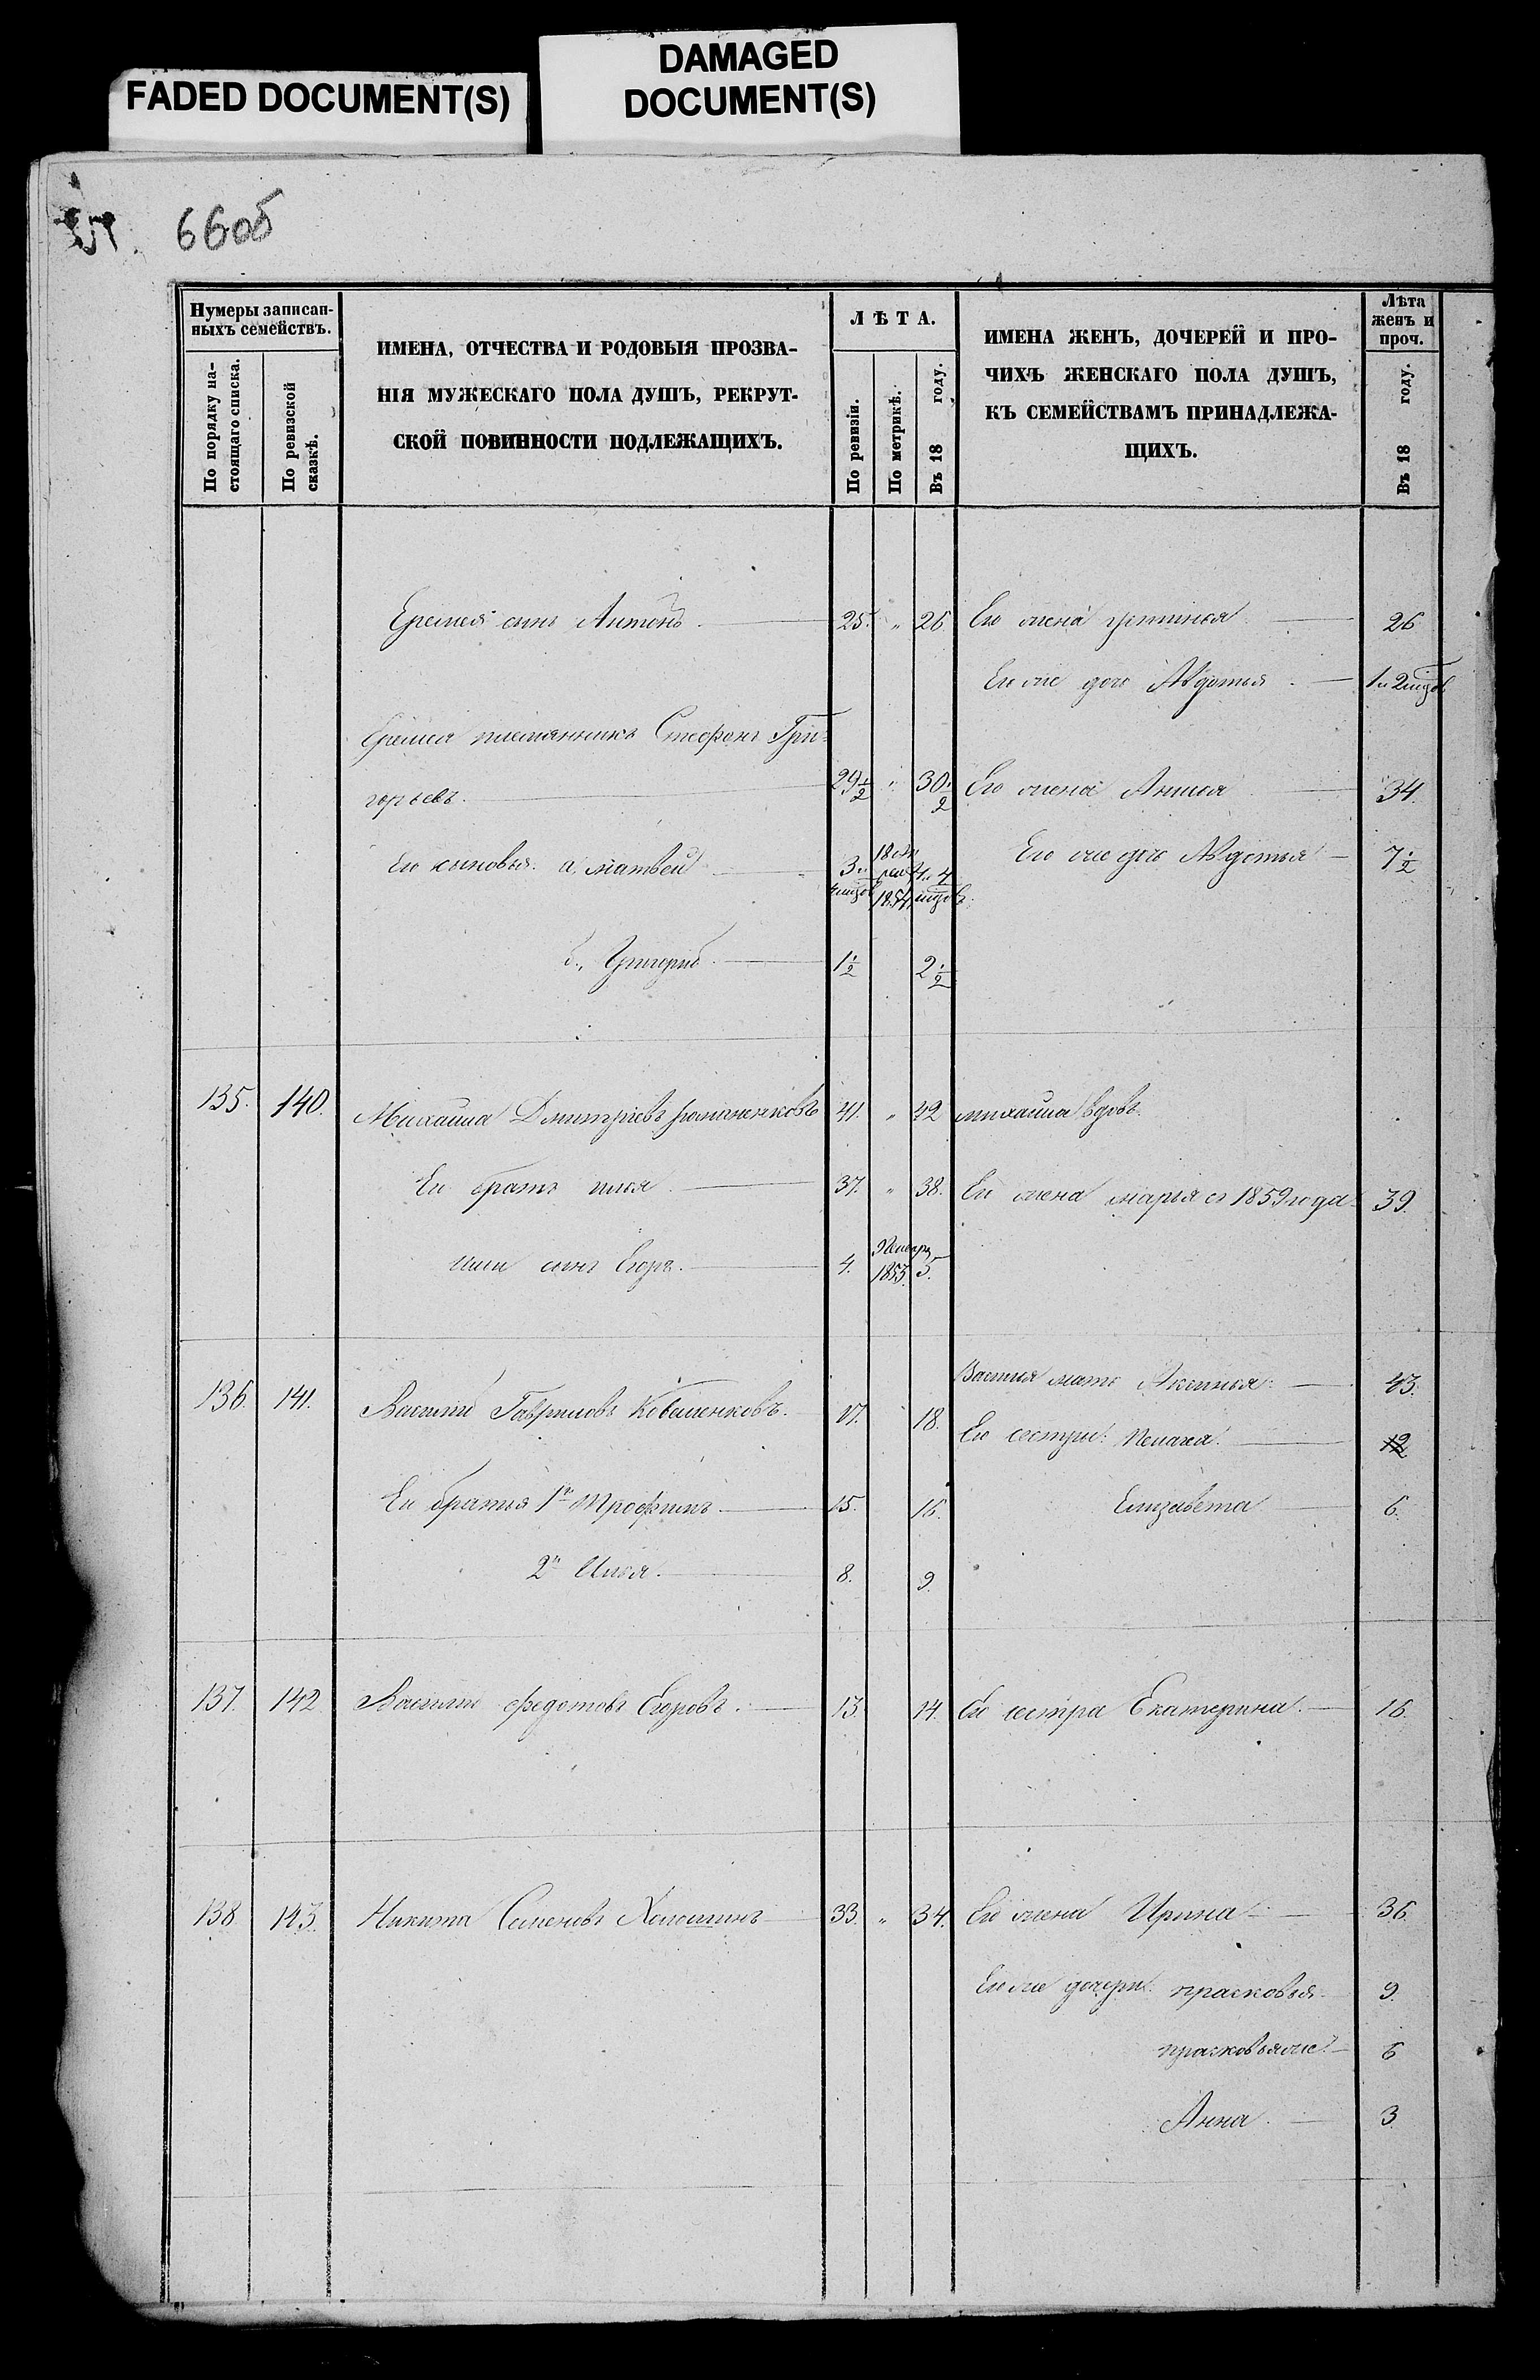 FADED DOCUMENT(S)
DAMAGED
DOCUMENT(S)
66об
Нумеры записан-
ныхъ семействъ.
По порядку на-
стоящаго списка.
По ревизской
сказкѣ.
ИМЕНА, ОТЧЕСТВА И РОДОВЫЯ ПРОЗВА-
НІЯ МУЖЕСКАГО ПОЛА ДУШЪ, РЕКРУТ-
СКОЙ ПОВИННОСТИ ПОДЛЕЖАЩИХЪ.
ЛѢТА.
По ревизіи.
По метрикѣ.
Въ 18 году.
ИМЕНА ЖЕНЪ, ДОЧЕРЕЙ И ПРО-
ЧИХЪ ЖЕНСКАГО ПОЛА ДУШЪ,
КЪ СЕМЕЙСТВАМЪ ПРИНАДЛЕЖА-
ЩИХЪ.
Лѣта
женъ и
проч.
Въ 18 году.
Еремея сынъ Антонъ. 25. " 26 Его жена устинья 26
Его же дочь Авдотья 1 и 2 мцов
Еремея племянникъ Стефонъ Гри-
горьевъ. 29 1/2 " 30 1/2 Его жена Анисья 34.
Его сыновья: а, матвей 3 " 4 мцов 1854 4 " 4 мцовъ. Его же дочь Авдотья 7 1/2
б., Григорий 1 1/2 2 1/2
135. 140. Михаила Дмитріевъ романенковъ 41. " 42 михаила вдовъ.
Его братъ илья 37. " 38. Его жена марья съ 1859 года 39.
ильи сынъ Егоръ. 4. 1853. 5.
136. 141. Василий Гавриловъ Коваленковъ. 17. 18. Василья мать Аксинья: 43.
Его сестры: Пелагея. 12
Его братья 1й Трофимъ 15. 16. Елизавета 6.
2й Илья. 8. 9.
137. 142 Василий федотовъ Егоровъ. 13. 14. Его сестра Екатерина. 16.
138 143. Никита Семеновъ 33. " 34. Его жена Ирина 36.
Его же дочери: прасковья 9.
прасковья же 6
Анна. 3.